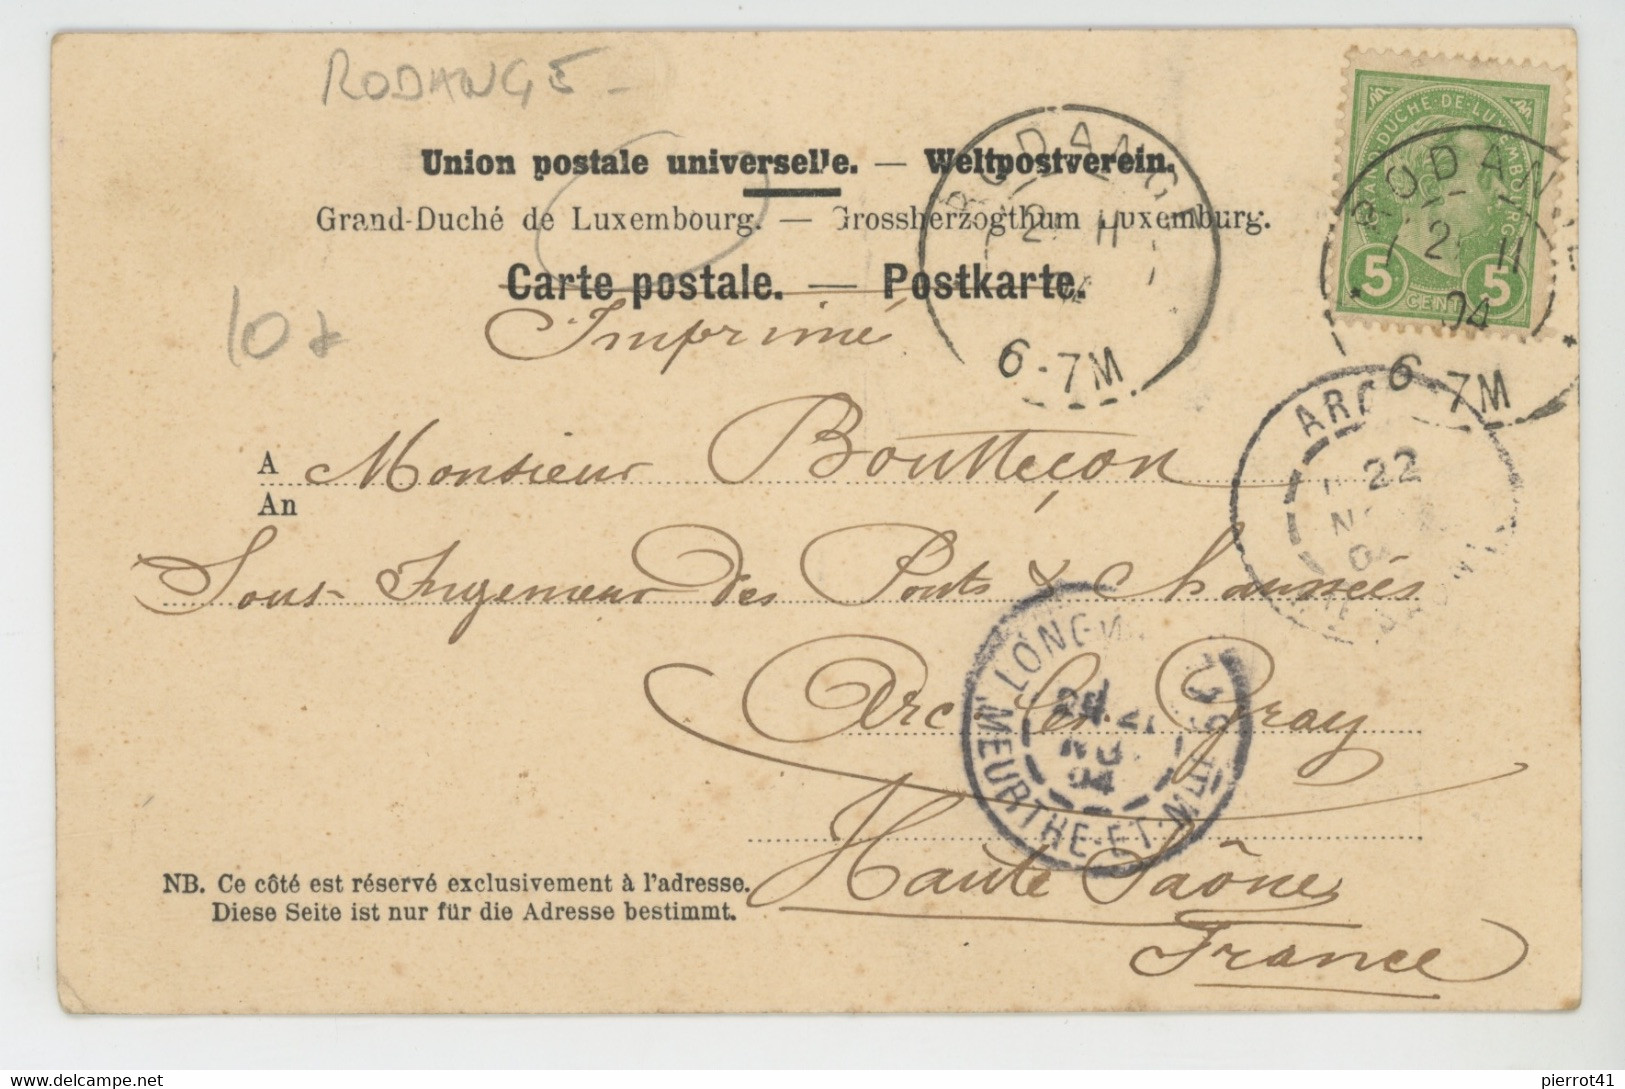 RODANGE
Union postale universelle. — Weltpostverein.
Grand-Duché de Luxembourg. — Grossherzogthum Luxemburg.
Carte postale. — Postkarte.
Imprimé
10
GRAND-DUCHÉ-DE-LUXEMBOURG
5 CENT 5
RODANGE
2 11
6-7M
RODAN
2 11
04
6-7M
A Monsieur Boutteçon
An
Sous-Ingenieur des Ponts & Chaussées
Arc-les-Gray
Haute Saône
France
ARC
22
04
LONGWY
21
04
MEURTHE-ET-M
NB. Ce côté est réservé exclusivement à l'adresse.
Diese Seite ist nur für die Adresse bestimmt.
pierrot41